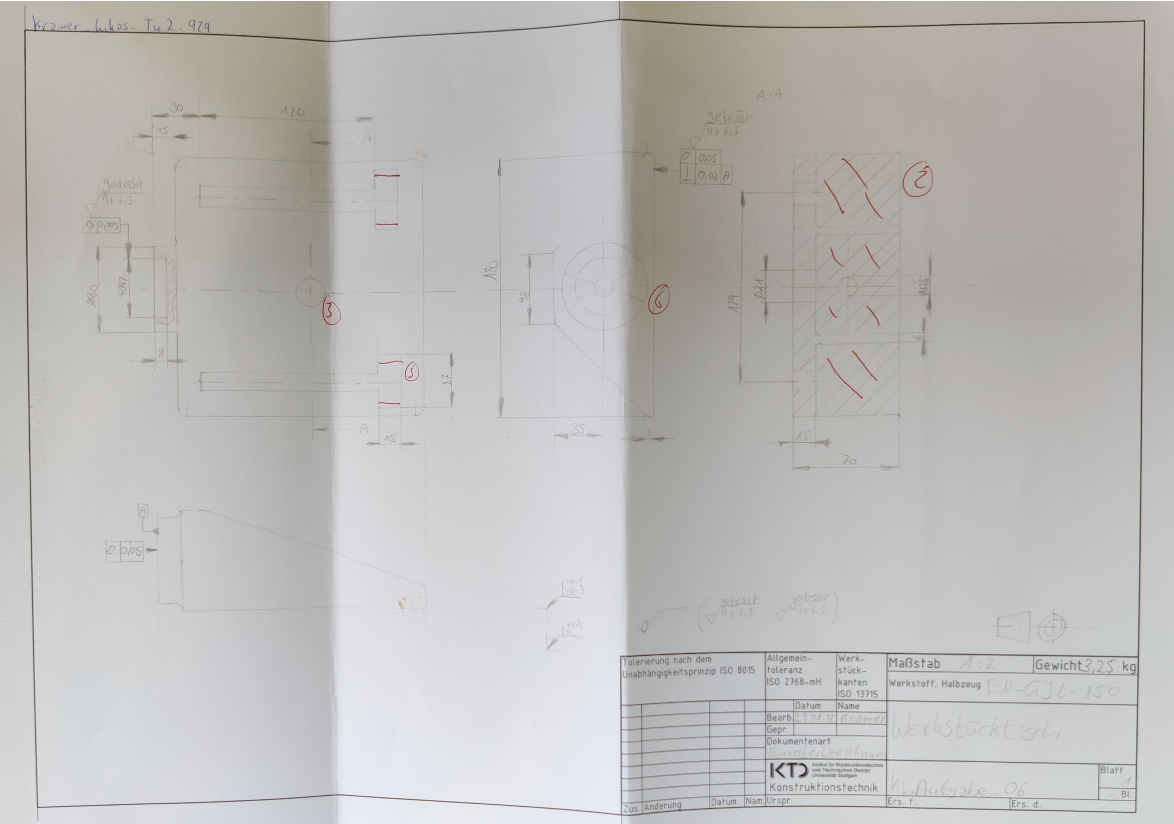 Kramer Lukas - Tu 2 - 929
A-A
30
120
15
A
gefräst
0,05
0,02 A
gedreht
2
0,005
180
48
129
Ø21
3
6
8
5
A
15
35
15
70
A
0,05
gefräst
gedreht
Tolerierung nach dem
Unabhängigkeitsprinzip ISO 8015
Allgemein-
toleranz
ISO 2768-mH
Werk-
stück-
kanten
ISO 13715
Maßstab 1:2
Gewicht 3,25 kg
Werkstoff, Halbzeug EN-GJL-150
Datum Name
Bearb. Kramer
Gepr.
Werkstücktisch
Dokumentenart
KTD Institut für Konstruktionstechnik
und Technisches Design
Universität Stuttgart
Konstruktionstechnik
KL Aufgabe_06
Blatt
1
Bl.
Zus. Änderung Datum Nam. Urspr. Ers. f.: Ers. d.: